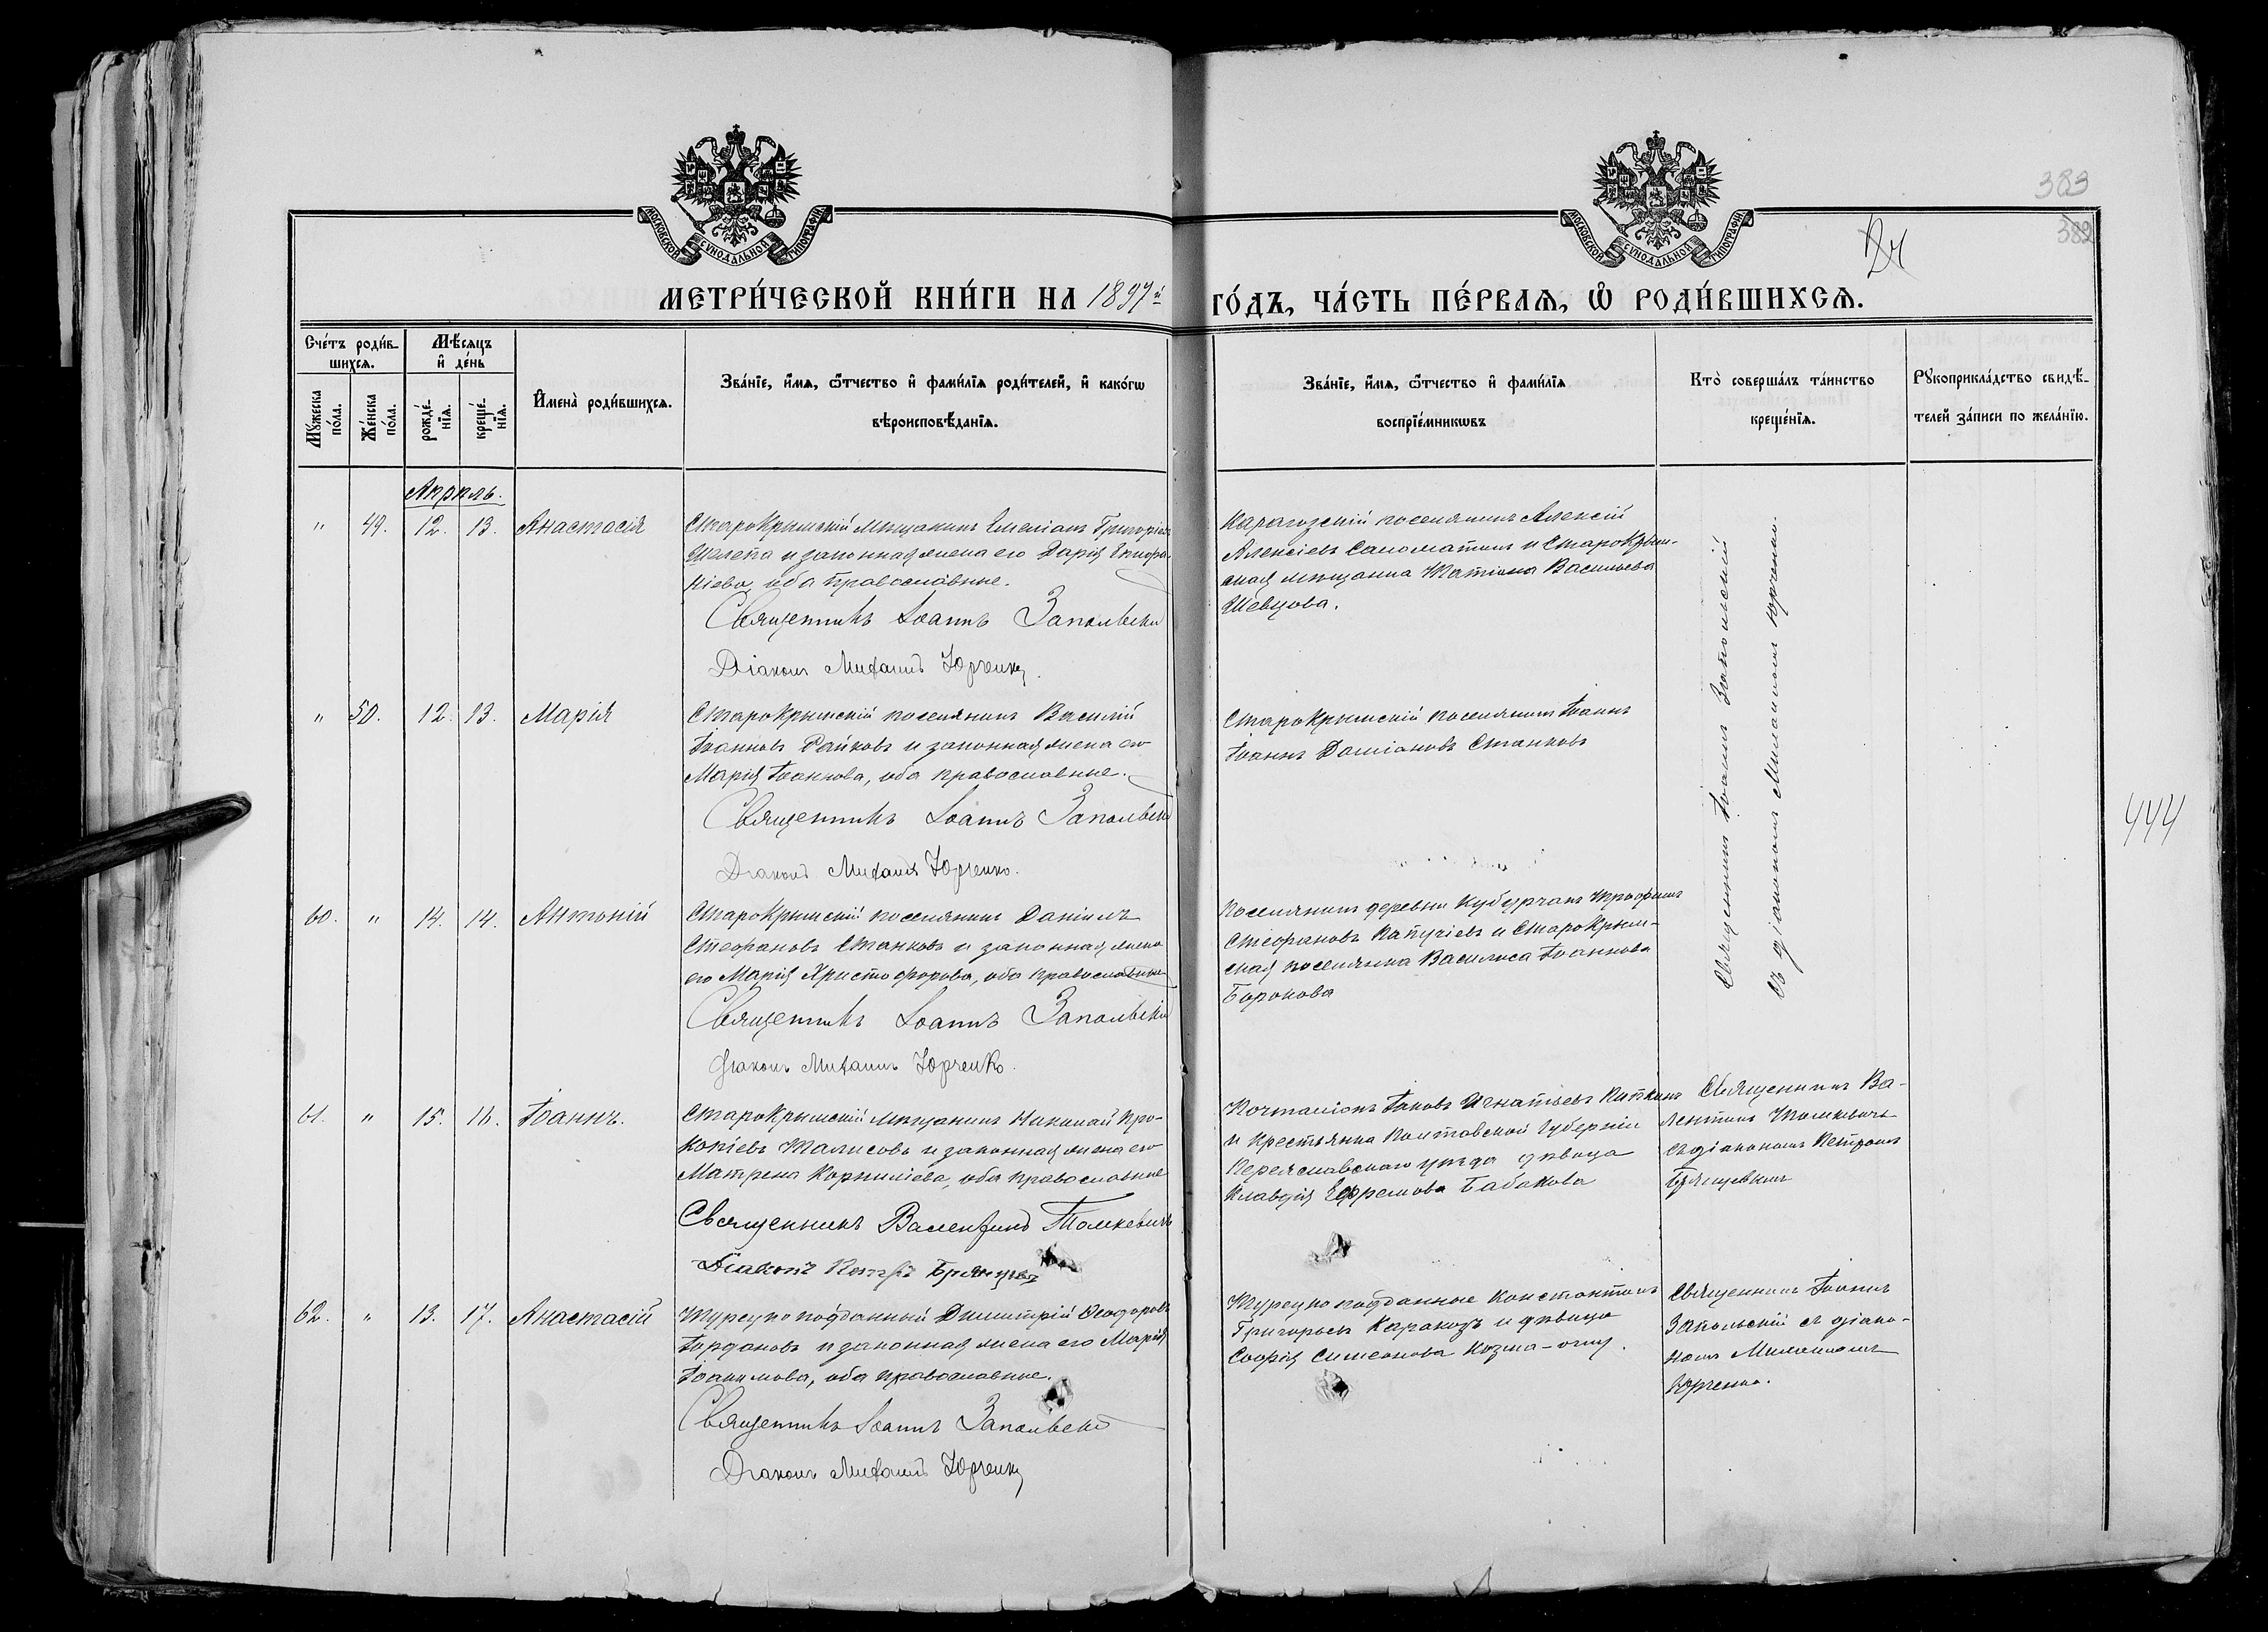 383
382
МОСКОВСКОЙ СѴНОДАЛЬНОЙ ТИПОГРАФИИ
МОСКОВСКОЙ СѴНОДАЛЬНОЙ ТИПОГРАФИИ
МЕТРИ́ЧЕСКОЙ КНИ́ГИ НА 1897й ГО́ДЪ, ЧА́СТЬ ПЕ́РВАѦ, Ѽ РОДИ́ВШИХСѦ.
Сче́тъ роди́в-
шихсѧ.
Мꙋ́жеска по́ла.
Же́нска по́ла.
Мѣ́сѧцъ
и҆ де́нь
рожде́-
нїѧ.
креще́-
нїѧ.
И҆мена̀ роди́вшихсѧ.
Зва́нїе, и҆́мѧ, ѻ҆́тчество и҆ фами́лїѧ роди́телей, и҆ како́гѡ
вѣроисповѣ́данїѧ.
Зва́нїе, и҆́мѧ, ѻ҆́тчество и҆ фами́лїѧ
воспрїе́мникѡвъ
Кто̀ соверша́лъ та́инство
креще́нїѧ.
Рꙋкоприкла́дство свидѣ́-
телей за́писи по жела́нїю.
Апрѣль.
" 49. 12. 13. Анастасія
Старокрымскій мѣщанинъ Емеліанъ Григоріевъ
Шелепа и законная жена его Дарія
оба православные.
Священникъ Іоаннъ Запольскій
Діаконъ Михаилъ Юрченко.
Карагозскій поселянинъ Алексій
Алексіевъ Саломатинъ и Старокрым-
ская мѣщанка Татіана Васильева
Шевцова.
Священникъ Іоаннъ Запольскій
съ діакономъ Михаиломъ Юрченко.
" 50. 12. 13. Марія
Старокрымскій поселянинъ Василій
Іоанновъ Райковъ и законная жена его
Марія Іоаннова, оба православные.
Священникъ Іоаннъ Запольскій
Діаконъ Михаилъ Юрченко.
Старокрымскій поселянинъ Іоаннъ
Іоаннъ Даміановъ Станковъ
444
60. " 14. 14. Антоній
Старокрымскій поселянинъ Даніилъ
Стефановъ Станковъ и законная жена
его Марія Христофорова, оба православные
Священникъ Іоаннъ Запольскій
Діаконъ Михаилъ Юрченко.
Поселянинъ деревни Кубурчакъ Трофимъ
Стефановъ Капучіевъ и Старокрым-
ская поселянка Василиса Іоаннова
Баронова
61. " 15. 16. Іоаннъ.
Старокрымскій мѣщанинъ Николай Про-
копіевъ Талисовъ и законная жена его
Матрена Корниліева, оба православные
Священникъ Валентинъ Томкевичъ
Діаконъ Петръ Брянцевъ
Почталіонъ Іаковъ Игнатьевъ Пипкинъ
и крестьянка Полтавской губерніи
Переяславскаго уѣзда дѣвица
Клавдія Ефремова Бабакова
Священникъ Ва-
лентинъ Томкевичъ
съ діакономъ Петромъ
Брянцевымъ
62. " 13. 17. Анастасій
Турецко подданный Димитрій Ѳеодоровъ
Іордановъ и законная жена его Марія
Іоакимова, оба православные.
Священникъ Іоаннъ Запольскій
Діаконъ Михаилъ Юрченко
Турецко подданные Константинъ
Григорьевъ Каракозъ и дѣвица
Софія Симеонова Козма-оглу.
Священникъ Іоаннъ
Запольскій съ діако-
номъ Михаиломъ
Юрченко.